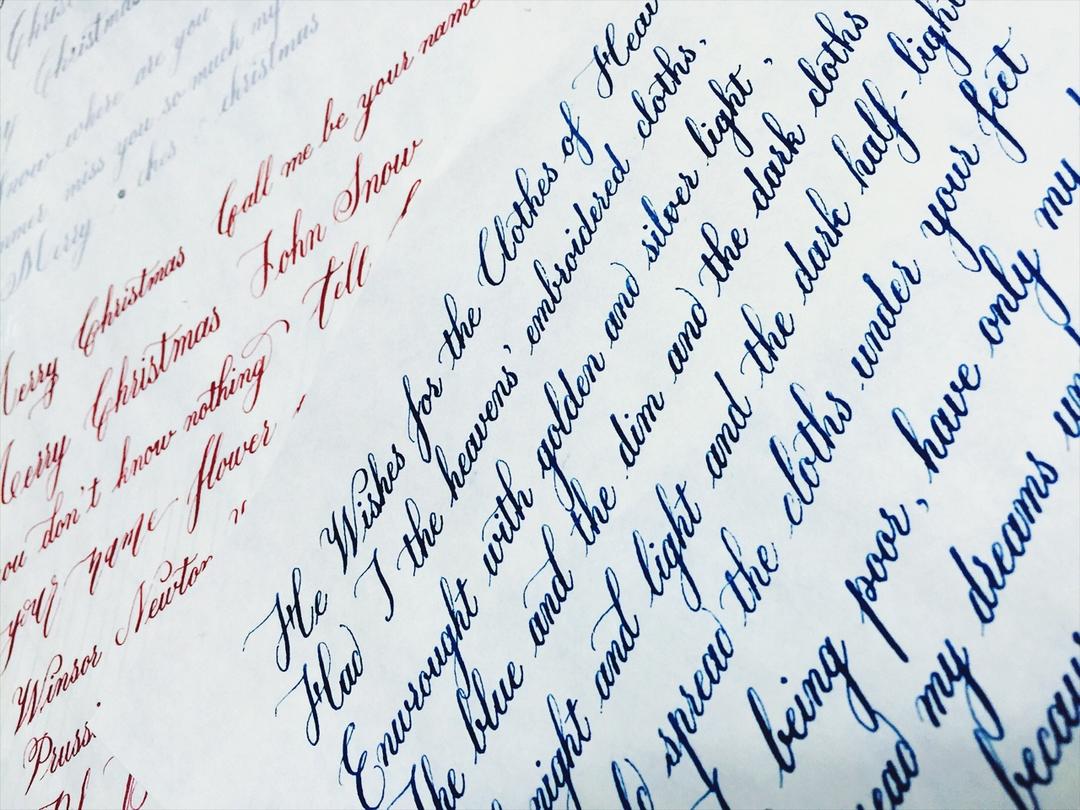 Christmas
where are you
miss you so much my
christmas
Merry
Call me be your name
Merry Christmas
John Snow
Merry Christmas
tell
you don't know nothing
your name flower
Winsor Newton
Pruss.
He Wishes for the Clothes of
Had I the heavens' embroidered cloths,
Enwrought with golden and silver light,
The blue and the dim and the dark cloths
night and light and the dark half-light
spread the cloths under your feet
I being poor, have only my
my dreams